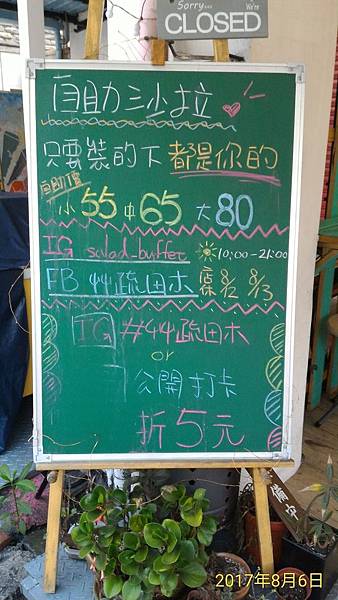 Sorry... We're
CLOSED
自助沙拉
只要裝的下 都是你的
自助價
小55 中65 大80
IG salad_buffet 10:00-21:00
FB 艸蔬田木 休 8/2 8/3
IG #艸蔬田木
or
公開打卡
折5元
備中
2017年8月6日